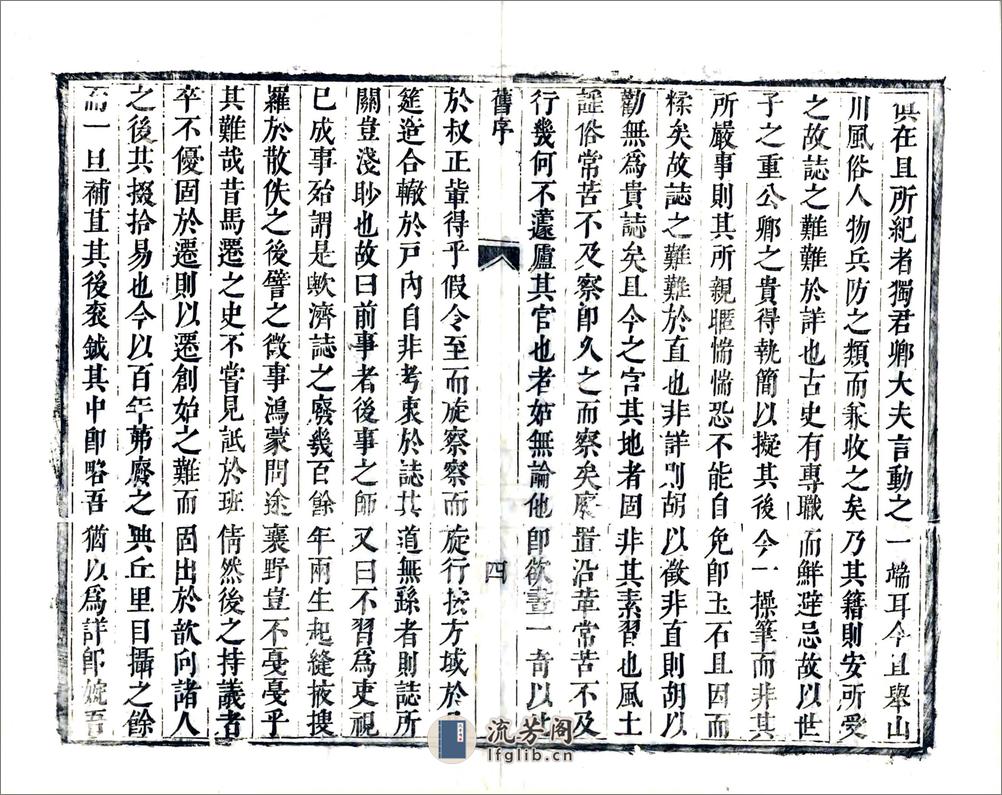 俱在且所紀者獨君卿大夫言動之一端耳今且舉山
川風俗人物兵防之類而兼收之矣乃其籍則安所受
之故誌之難難於詳也古史有專職而鮮避忌故以世
子之重公卿之貴得執簡以擬其後今一操筆而非其
所嚴事則其所親暱惴惴恐不能自免卽玉石且因而
糅矣故誌之難難於直也非詳則胡以徵非直則胡以
勸無為貴誌矣且今之官其地者固非其素習也風土
謡俗常苦不及察卽久之而察矣廢置沿革常苦不及
行幾何不蘧廬其官也者姑無論他卽欲畫一奇以
舊序
四
於叔正輩得乎假令至而旋察察而旋行按方域於
筵造合轍於戸內自非考衷於誌其道無繇者則誌所
關豈淺眇也故曰前事者後事之師又曰不習爲吏視
已成事殆謂是歟濟誌之廢幾百餘年兩生起縫掖捜
羅於散佚之後譬之徴事鴻蒙問途襄野豈不戞戞乎
其難哉昔馬遷之史不嘗見詆於班倩然後之持議者
卒不優固於遷則以遷創始之難而固出於歆向諸人
之後其掇拾易也今以百年苐廢之典丘里目攝之餘
而一旦補苴其後衮鉞其中卽略吾猶以爲詳卽婉吾
流芳阁
lfglib.cn